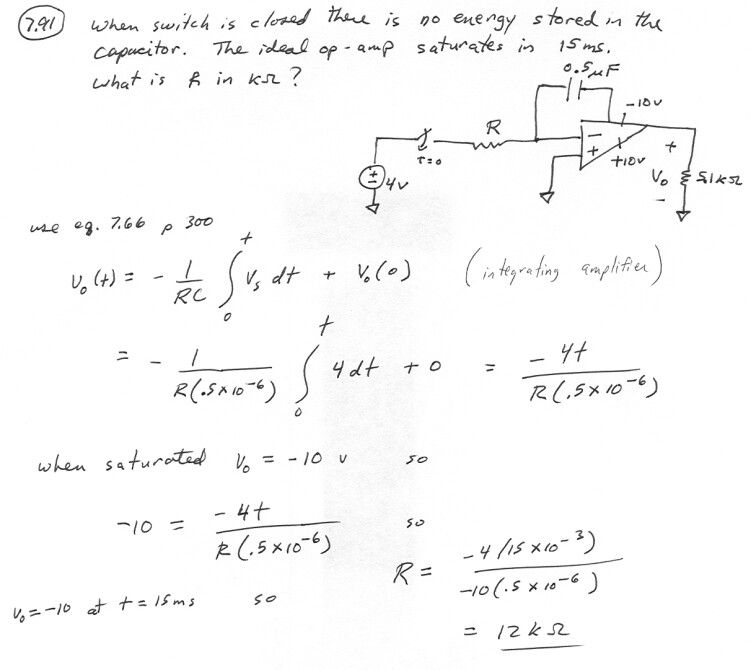 7.91 When switch is closed there is no energy stored in the
capacitor. The ideal op-amp saturates in 15 ms.
What is R in kΩ?
0.5 μF
-10v
R
T=0
- +
+10v
+
Vo
-
5.1 kΩ
+ -
4v
use eq. 7.66 p 300
Vo(t) = - 1/RC ∫₀ᵗ Vs dt + Vo(0) (integrating amplifier)
= - 1/R(.5×10⁻⁶) ∫₀ᵗ 4 dt + 0 = -4t/R(.5×10⁻⁶)
when saturated Vo = -10 v so
-10 = -4t/R(.5×10⁻⁶) so
Vo = -10 at t = 15 ms so
R = -4(15×10⁻³)/-10(.5×10⁻⁶)
= 12 kΩ